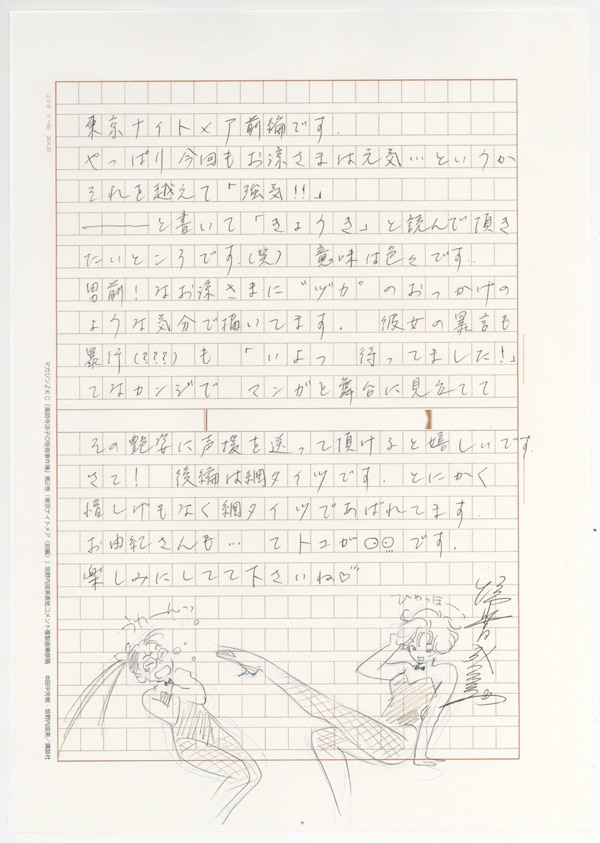 東京ナイトメア前編です.
やっぱり今回もお涼さまは元気…というか
それを越えて「強気!!」
――――と書いて「きょうき」と読んで頂き
たいところです.(笑) 意味は色々です.
男前!なお涼さまに"ヅカ"のおっかけの
ような気分で描いてます. 彼女の暴言も
暴行(???)も「いよっ 待ってました!」
てなカンジで マンガを舞台に見立てて
その艶姿に声援を送って頂けると嬉しいです.
さて! 後編は網タイツです. とにかく
惜しげもなく網タイツであばれてます.
お由紀さんも… てトコが○○です.
楽しみにしてて下さいね♡
うわーんっ
ひゃっほー
コクヨ ケー60 20×20
マガジンZKC「薬師寺涼子の怪奇事件簿」第2巻「東京ナイトメア〈前編〉」垣野内成美表紙コメント複製直筆原稿 ©田中芳樹・垣野内成美/講談社